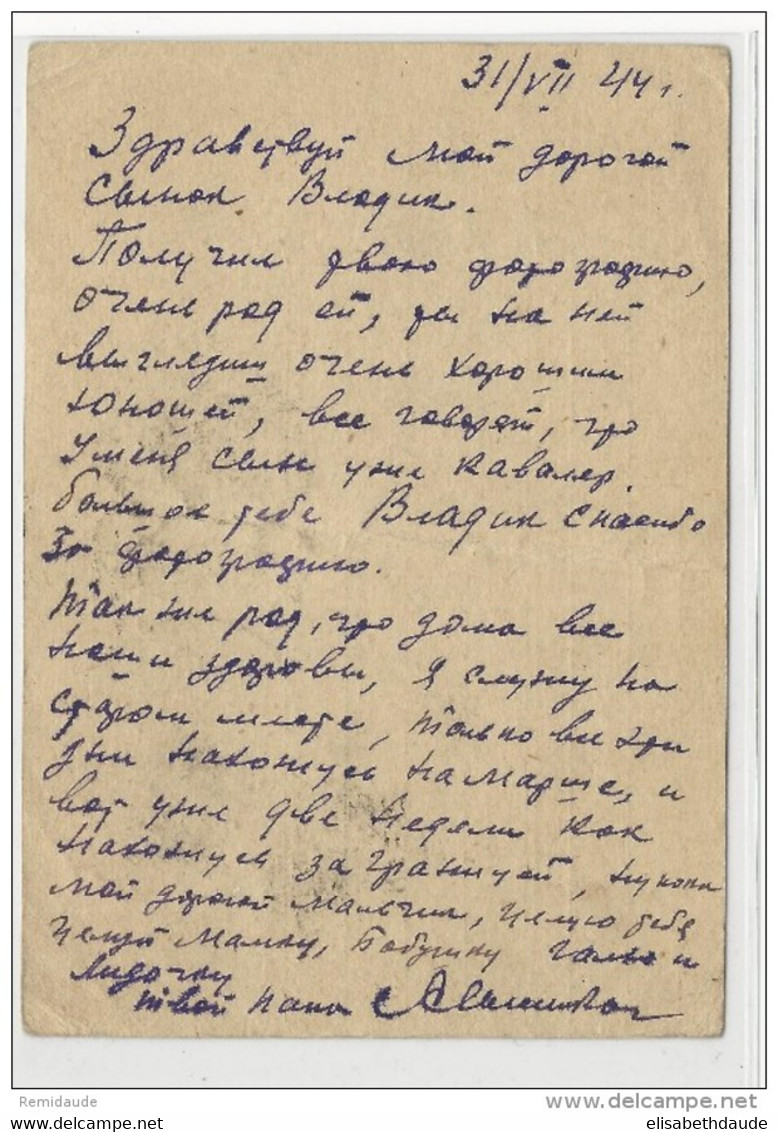 31/VII 44 г.
Здравствуй мой дорогой
сынок Владик.
Получил твою фотографию,
очень рад ей, ты на ней
выглядиш очень хорошим
юношей, все говорят, что
у меня сын уже кавалер.
большое тебе Владик спасибо
за фотографию.
Так же рад, что дома все
наши здоровы, я служу на
старом месте, только все эти
дни нахожусь на марше, и
вот уже две недели как
нахожусь за границей, ну пока
мой дорогой мальчик, целую тебя
целуй мамку, Бабушку Галю и
Лидочку
твой папа
Remidaude
delcampe.net
elisabethdaude